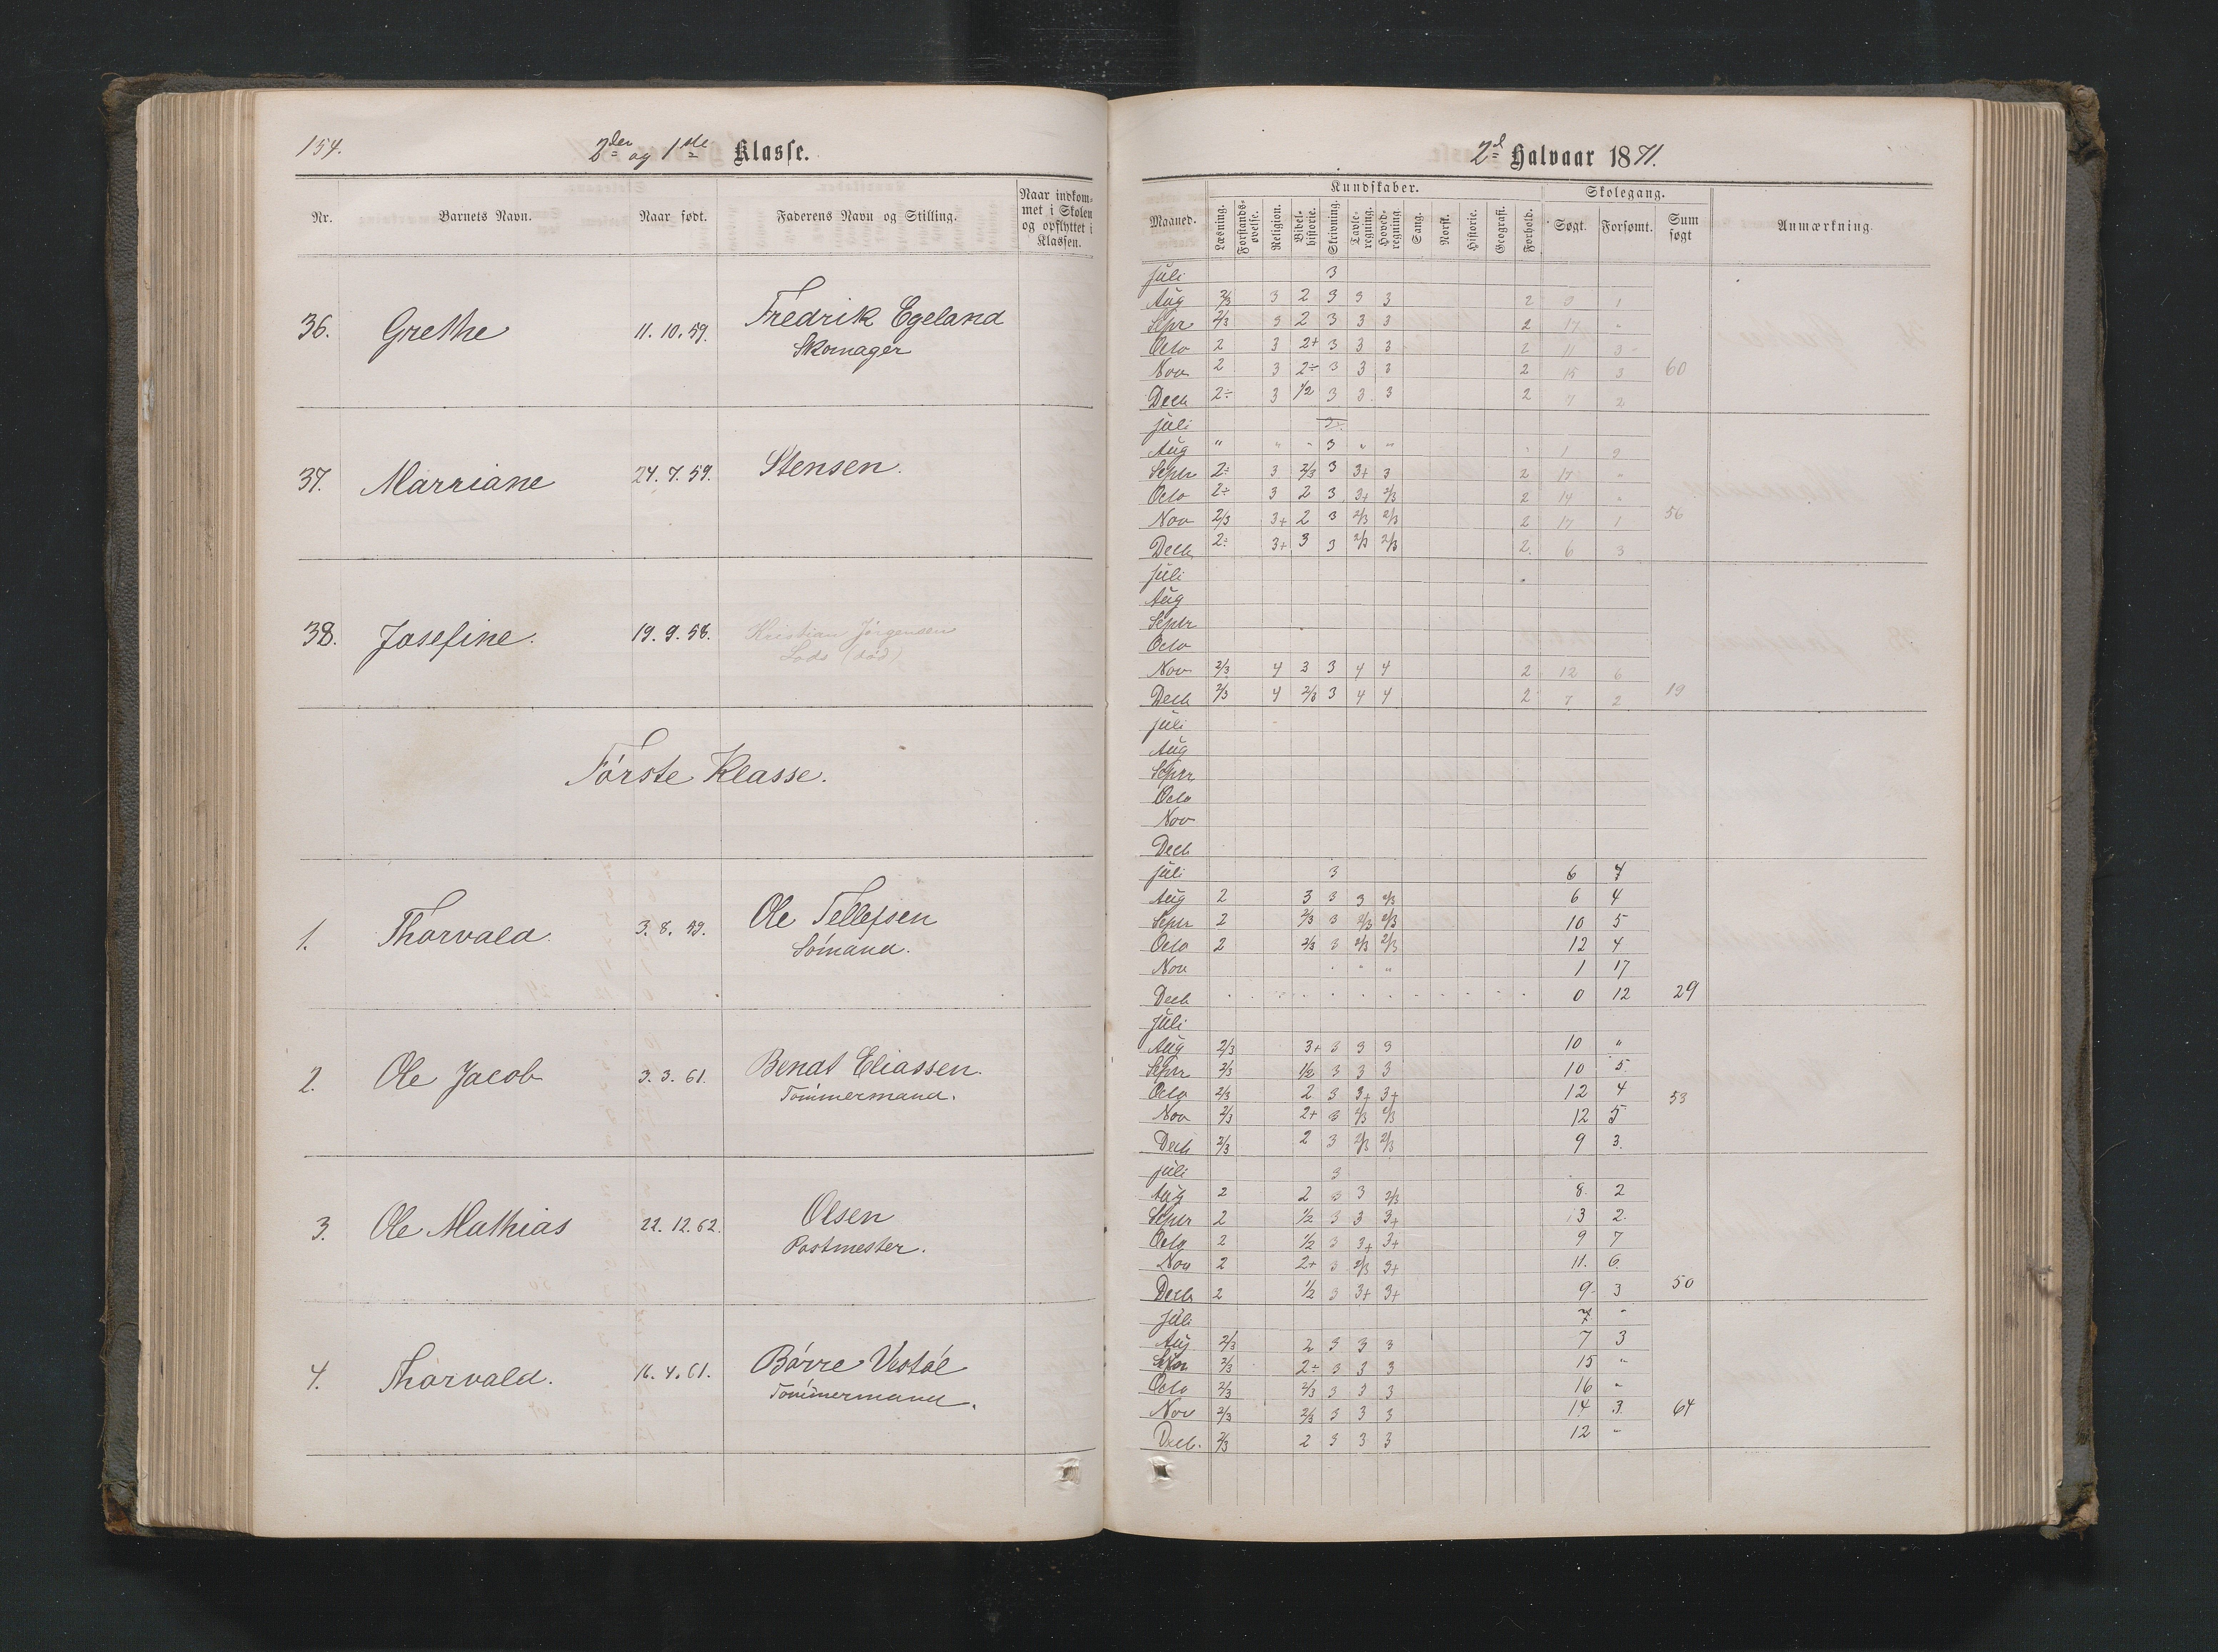 154. 2den og 1ste Klasse.
Nr. Barnets Navn. Naar født. Faderens Navn og Stilling. Naar indkommet i Skolen og opflyttet i Klassen.
36. Grethe 11.10.59. Fredrik Egeland
Skomager
37. Marriane 24.7.59. Stensen.
38. Josefine. 19.9.58. Kristian Jörgensen
Lods (död)
Förste Klasse.
1. Thorvald. 3.8.59. Ole Tellefsen
Sömand.
2. Ole Jacob 3.3.61. Bendt Eliassen.
Tömmermand.
3. Ole Mathias 22.12.62. Olsen
Postmester.
4. Thorvald. 16.4.61. Börre Vestöl
Tömmermand.
2d Halvaar 1871.
Maaned. Kundskaber. Skolegang. Anmærkning.
Læsning. Forstandsøvelse. Religion. Bibelhistorie. Skrivning. Tavleregning. Hovedregning. Sang. Norsk. Historie. Geografi. Forhold. Søgt. Forsømt. Sum søgt
Juli 3
Aug 2/3 3 2 3 3 3 2 0 1
Sepr 2/3 3 2 3 3 3 2 17 "
Octo 2 3 2+ 3 3 3 2 11 3
Nov 2 3 2÷ 3 3 3 2 15 3 60
Decb 2÷ 3 1/2 3 3 3 2 7 2
Juli
Aug " " " 3 " " 1 9
Septr 2÷ 3 2/3 3 3+ 3 2 17 "
Octo 2÷ 3 2 3 3+ 2/3 2 14 "
Nov 2/3 3+ 2 3 2/3 2/3 2 17 1 56
Decb 2÷ 3+ 3 3 2/3 2/3 2. 6 3
Juli
Aug
Septr
Octo
Nov 2/3 4 3 3 4 4 2 12 6
Decb 2/3 4 2/3 3 4 4 2 7 2 19
Juli
Aug
Septr
Octo
Nov
Decb
Juli 3 6 7
Aug 2 3 3 3 2/3 6 4
Septr 2 2/3 3 2/3 2/3 10 5
Octo 2 2/3 3 2/3 2/3 12 4
Nov " " 1 17
Decb 0 12 29
Juli
Aug 2/3 3+ 3 3 3 10 "
Septr 2/3 1/2 3 3 3 10 5.
Octo 2/3 2 3 3+ 3+ 12 4 53
Nov 2/3 2+ 3 2/3 2/3 12 5
Decb 2/3 2 3 2/3 2/3 9 3.
Juli 3
Aug 2 2 3 3 2/3 8. 2
Septr 2 1/2 3 3 3+ 13 2.
Octo 2 1/2 3 3+ 3+ 9 7
Nov 2 2+ 3 2/3 3+ 11. 6.
Decb 2 1/2 3 3+ 3+ 9 3 50
Juli "
Aug 2/3 2 3 3 3 7 3
Septr 2/3 2÷ 3 3 3 15 "
Octo 2/3 2/3 3 3 3 16 "
Nov 2/3 2/3 3 3 3 14 3. 64
Decb. 2/3 2 3 3 3 12 "